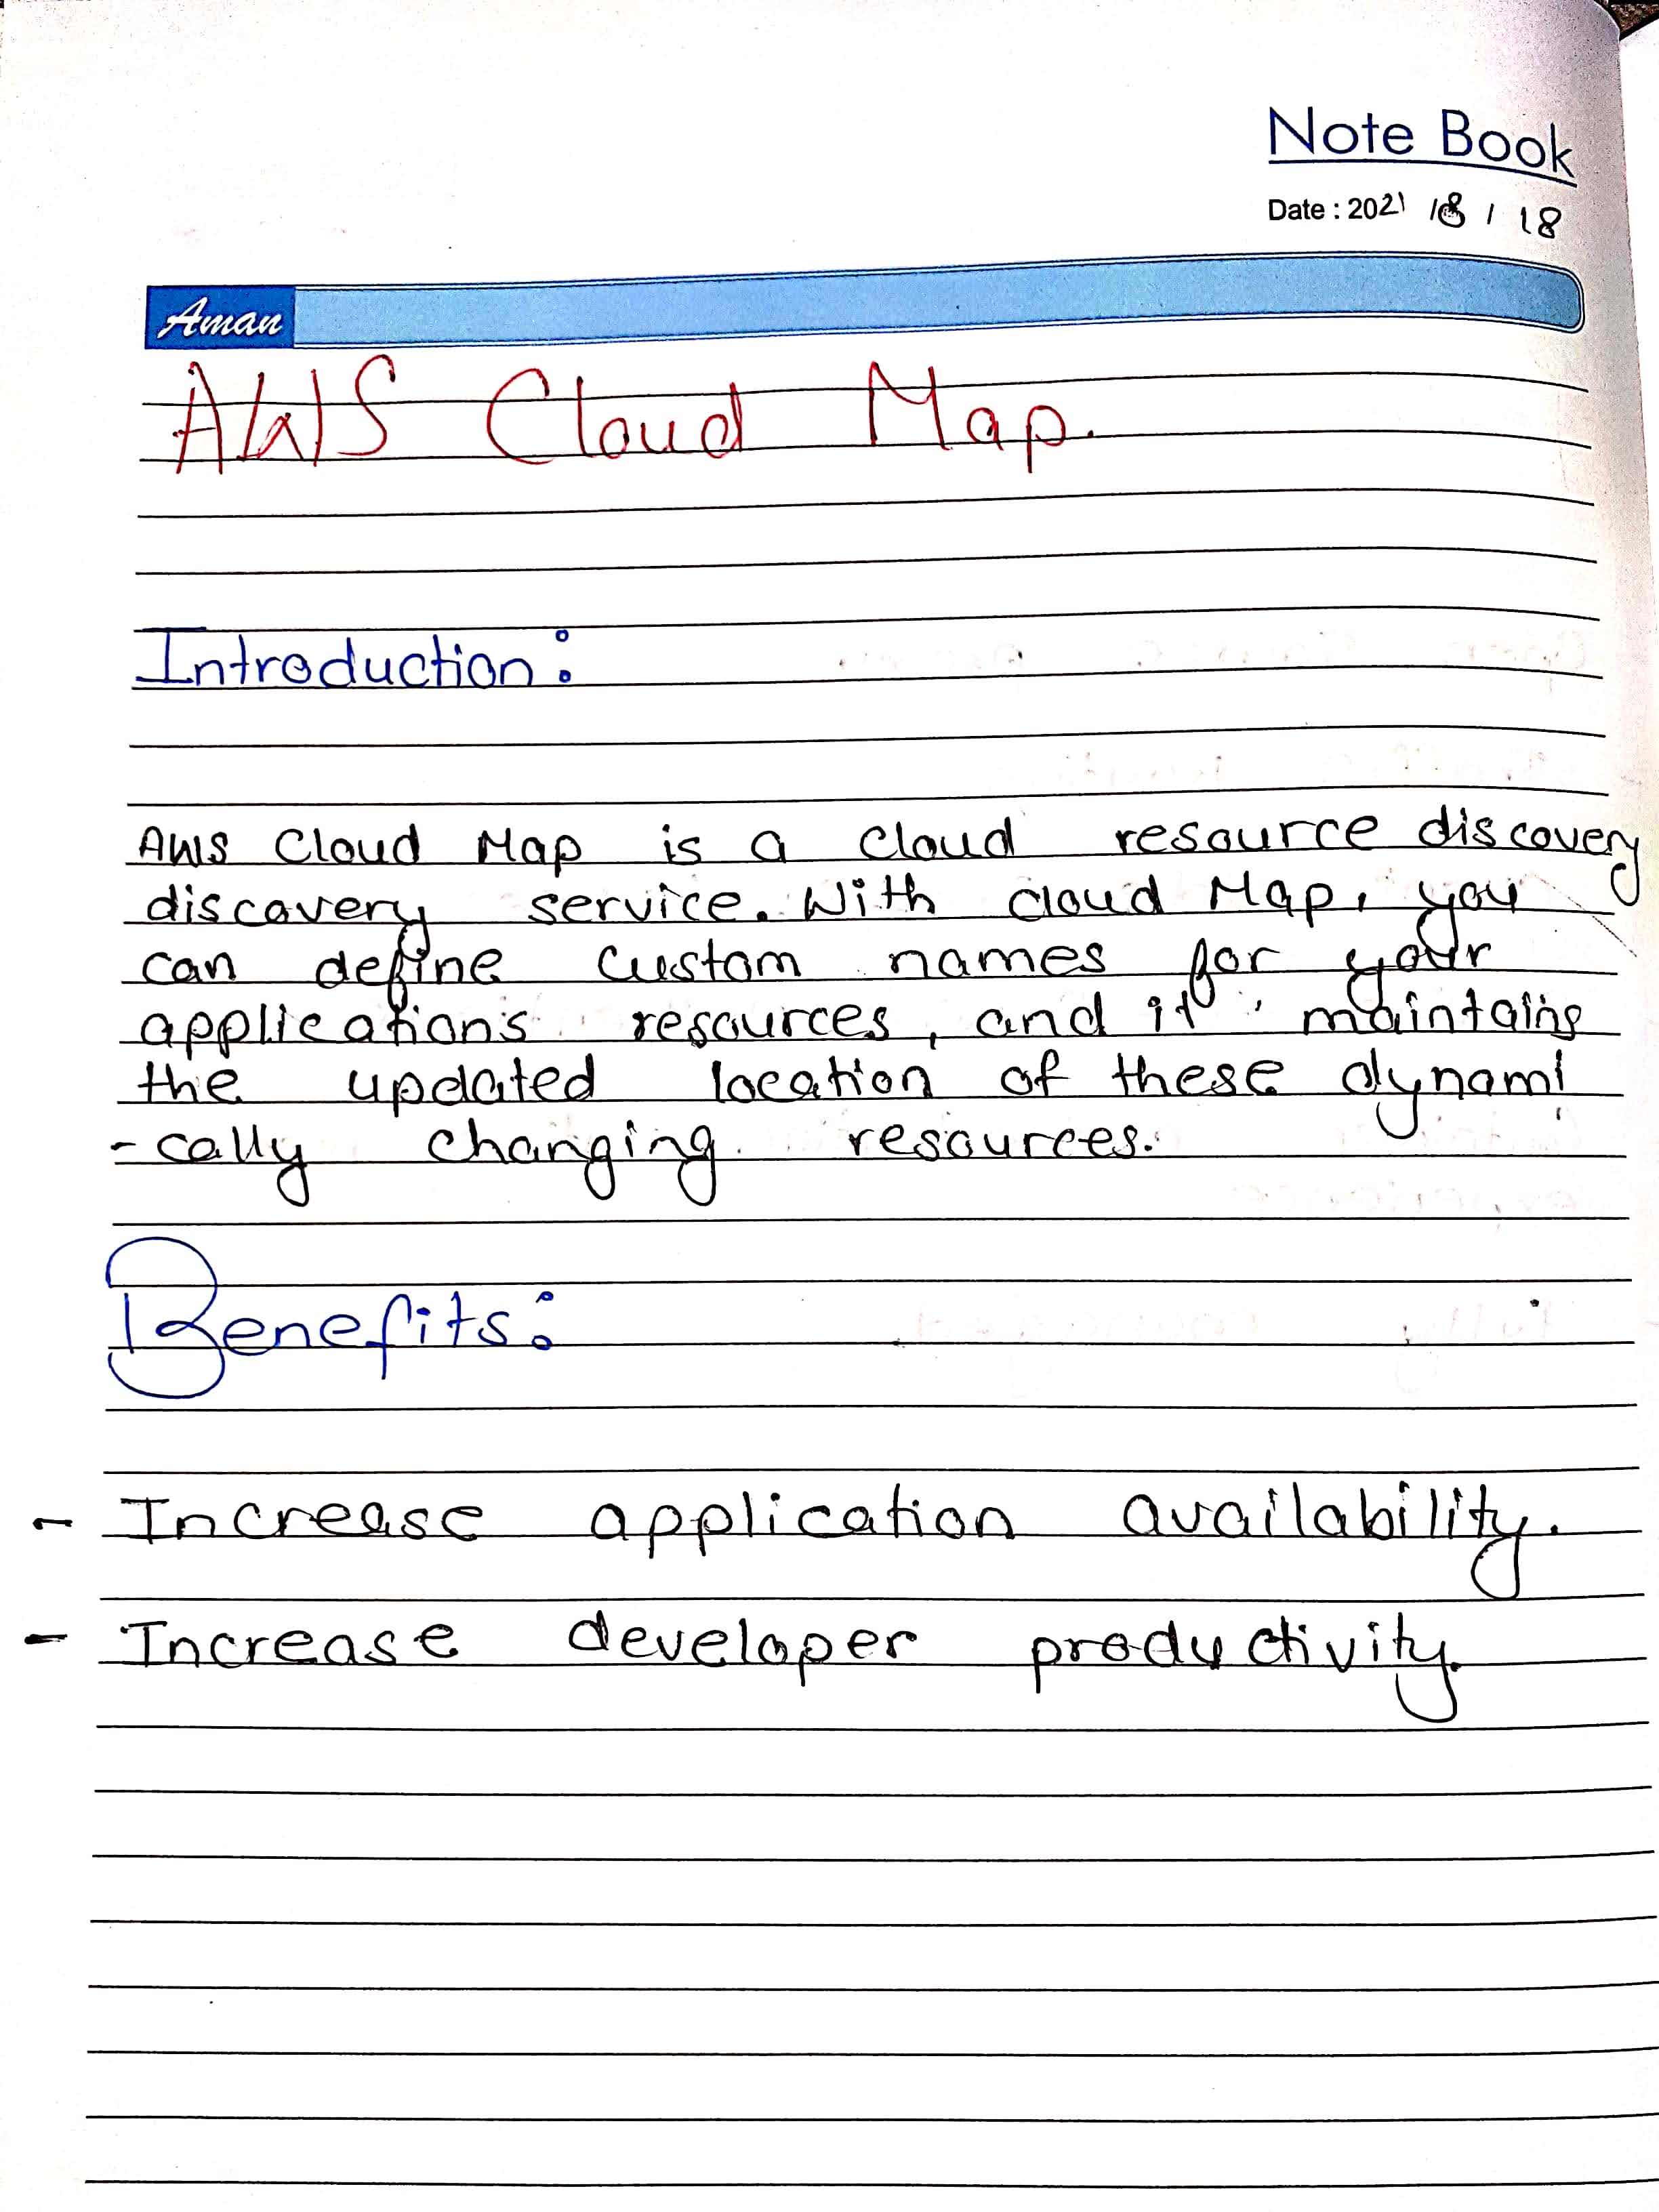 Note Book
Date : 2021 / 8 / 18
Aman
AWS Cloud Map.
Introduction:
AWS Cloud Map is a cloud resource discovery
discovery service. With cloud Map, you
can define custom names for your
applications resources, and it maintains
the updated location of these dynami
-cally changing resources.
Benefits:
- Increase application availability.
- Increase developer productivity.